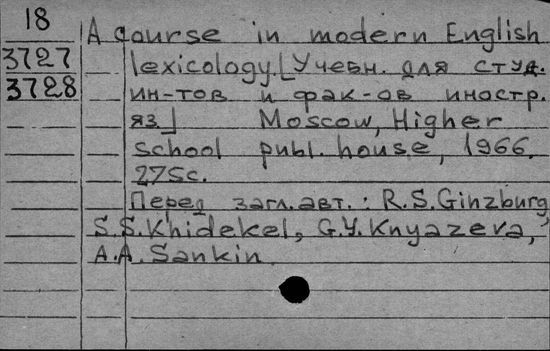 18
3727
3728
A course in modern English
lexicology. [Учебн. для студ.
ин-тов и фак-ов иностр.
яз.] Moscow, Higher
school publ. house, 1966.
275c.
Перед загл. авт.: R.S.Ginzburg,
S.S.Khidekel, G.Y.Knyazeva,
A.A.Sankin